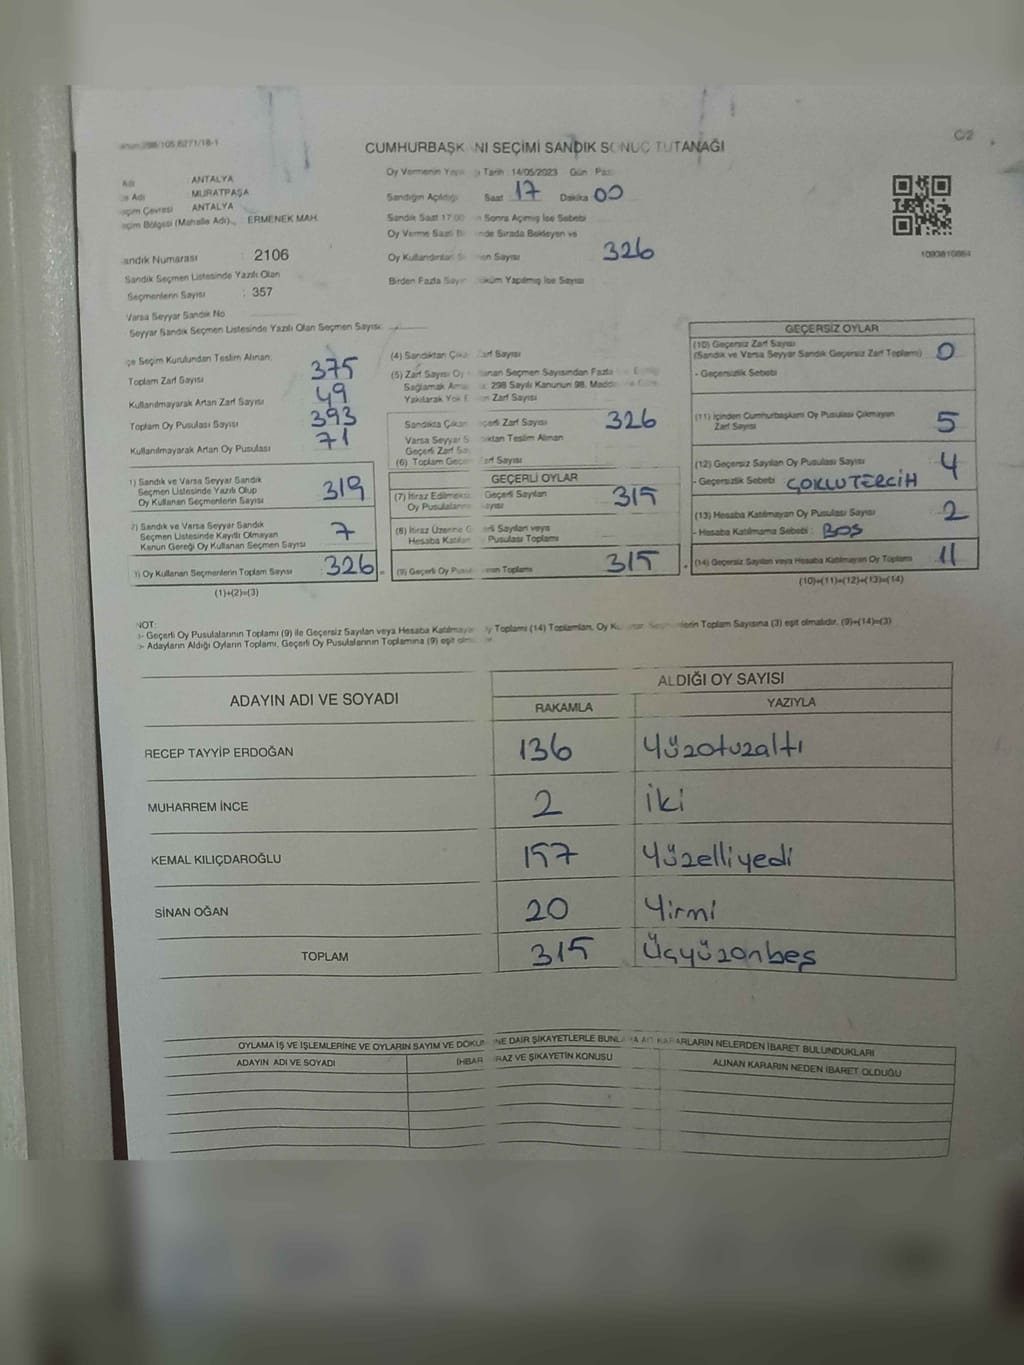 298/105,6271/18-1
C/2
CUMHURBAŞK NI SEÇİMİ SANDIK SONUÇ TUTANAĞI
Adı : ANTALYA
Adı : MURATPAŞA
Çevresi : ANTALYA
Bölgesi (Mahalle Adı) : ERMENEK MAH.
Oy Vermenin Tarih : 14/05/2023 Gün :
Sandığın Açıldığı Saat 17 Dakika 00
Sandık Saat 17:00 Sonra Açımış İse Sebebi
Oy Verme Saati nde Sırada Bekleyen ve
Oy Kullandırılan Sayısı 326
Birden Fazla Sayım Yapılmış İse Sayısı
andık Numarası : 2106
Sandık Seçmen Listesinde Yazılı Olan
Seçmenlerin Sayısı : 357
Varsa Seyyar Sandık No
Seyyar Sandık Seçmen Listesinde Yazılı Olan Seçmen Sayısı:
çe Seçim Kurulundan Teslim Alınan;
Toplam Zarf Sayısı 375
Kullanılmayarak Artan Zarf Sayısı 49
Toplam Oy Pusulası Sayısı 393
Kullanılmayarak Artan Oy Pusulası 71
1) Sandık ve Varsa Seyyar Sandık
Seçmen Listesinde Yazılı Olup
Oy Kullanan Seçmenlerin Sayısı 319
2) Sandık ve Varsa Seyyar Sandık
Seçmen Listesinde Kayıtlı Olmayan
Kanun Gereği Oy Kullanan Seçmen Sayısı 7
) Oy Kullanan Seçmenlerin Toplam Sayısı 326 =
(1)+(2)=(3)
(4) Sandıktan Zarf Sayısı
(5) Zarf Sayısı Oy Seçmen Sayısından Fazla
Sağlamak 298 Sayılı Kanunun 98.
Yakılarak Yok Zarf Sayısı
Sandıkta Çıkan Zarf Sayısı 326
Varsa Seyyar Teslim Alınan
Geçerli Zarf
(6) Toplam Zarf Sayısı
GEÇERLİ OYLAR
(7) İtiraz Geçerli Sayılan
Oy Pusulalarının 315
(8) İtiraz Üzerine Sayılan veya
Hesaba Katılan Pusulası Toplamı
(9) Geçerli Oy Toplamı 315
GEÇERSİZ OYLAR
(10) Geçersiz Zarf Sayısı
(Sandık ve Varsa Seyyar Sandık Geçersiz Zarf Toplamı) 0
- Geçersizlik Sebebi
(11) İçinden Cumhurbaşkanı Oy Pusulası Çıkmayan
Zarf Sayısı 5
(12) Geçersiz Sayılan Oy Pusulası Sayısı 4
- Geçersizlik Sebebi : ÇOKLU TERCİH
(13) Hesaba Katılmayan Oy Pusulası Sayısı 2
- Hesaba Katılmama Sebebi : BOŞ
(14) Geçersiz Sayılan veya Hesaba Katılmayan Oy Toplamı 11
(10)+(11)+(12)+(13)=(14)
NOT:
- Geçerli Oy Pusulalarının Toplamı (9) ile Geçersiz Sayılan veya Hesaba Katılmayan Toplamı (14) Toplamları, Oy Toplam Sayısına (3) eşit olmalıdır. (9)+(14)=(3)
- Adayların Aldığı Oyların Toplamı, Geçerli Oy Pusulalarının Toplamına (9) eşit
ADAYIN ADI VE SOYADI
ALDIĞI OY SAYISI
RAKAMLA YAZIYLA
RECEP TAYYİP ERDOĞAN 136 Yüzotuzaltı
MUHARREM İNCE 2 İki
KEMAL KILIÇDAROĞLU 157 Yüzelliyedi
SİNAN OĞAN 20 Yirmi
TOPLAM 315 Üçyüzonbeş
OYLAMA İŞ VE İŞLEMLERİNE VE OYLARIN SAYIM VE NE DAİR ŞİKAYETLERLE KARARLARIN NELERDEN İBARET BULUNDUKLARI
ADAYIN ADI VE SOYADI İHBAR VE ŞİKAYETİN KONUSU ALINAN KARARIN NEDEN İBARET OLDUĞU